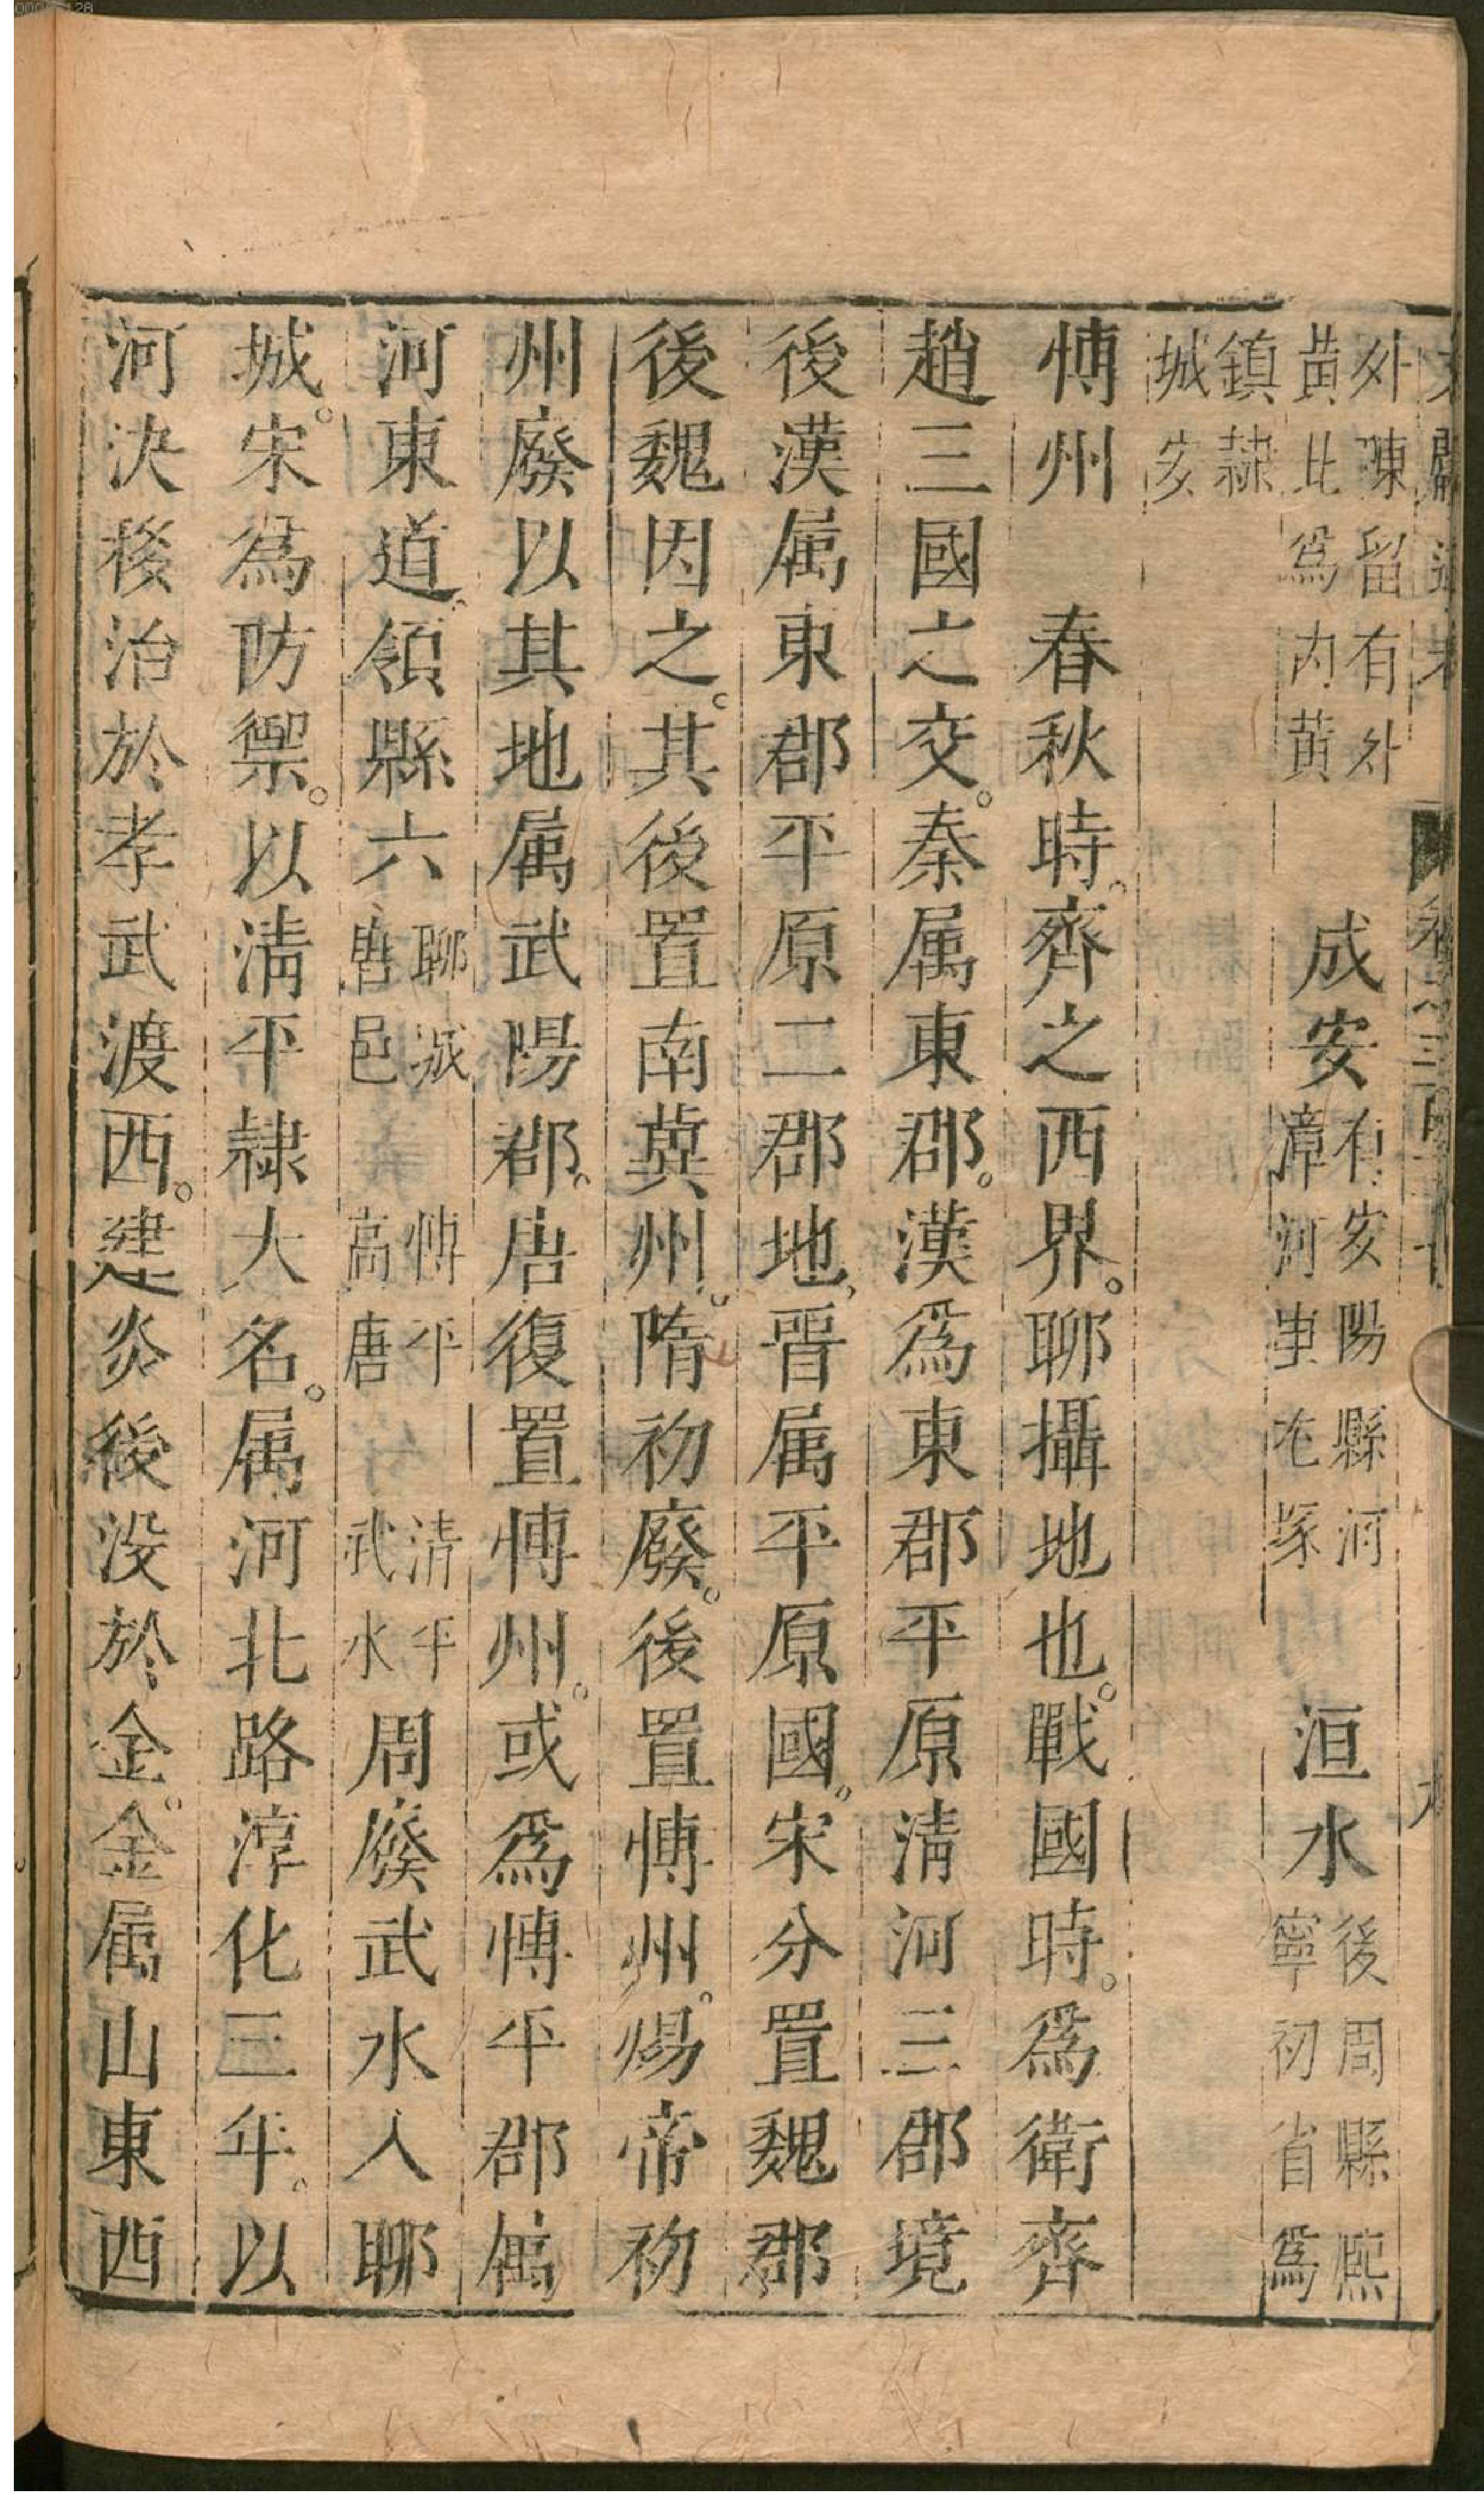 外陳留有外
黃此爲內黃
成安
有安陽縣河
漳河東屯塚
洹水
後周縣熙
寧初省爲
鎮隸
城安
愽州　春秋時。齊之西界。聊攝地也。戰國時。爲衛齊
趙三國之交。秦属東郡。漢爲東郡平原清河三郡境
後漢属東郡平原二郡地、晋属平原國。宋分置魏郡
後魏因之。其後置南冀州。隋初廢。後置愽州。煬帝初
州廢以其地属武陽郡。唐復置愽州。或爲愽平郡属
河東道。領縣六
聊城
堂邑
愽平
高唐
清平
武水
周廢武水入聊
城。宋爲防禦。以清平隸大名。属河北路淳化三年。以
河决移治於孝武渡西。建炎後没於金。金属山東西